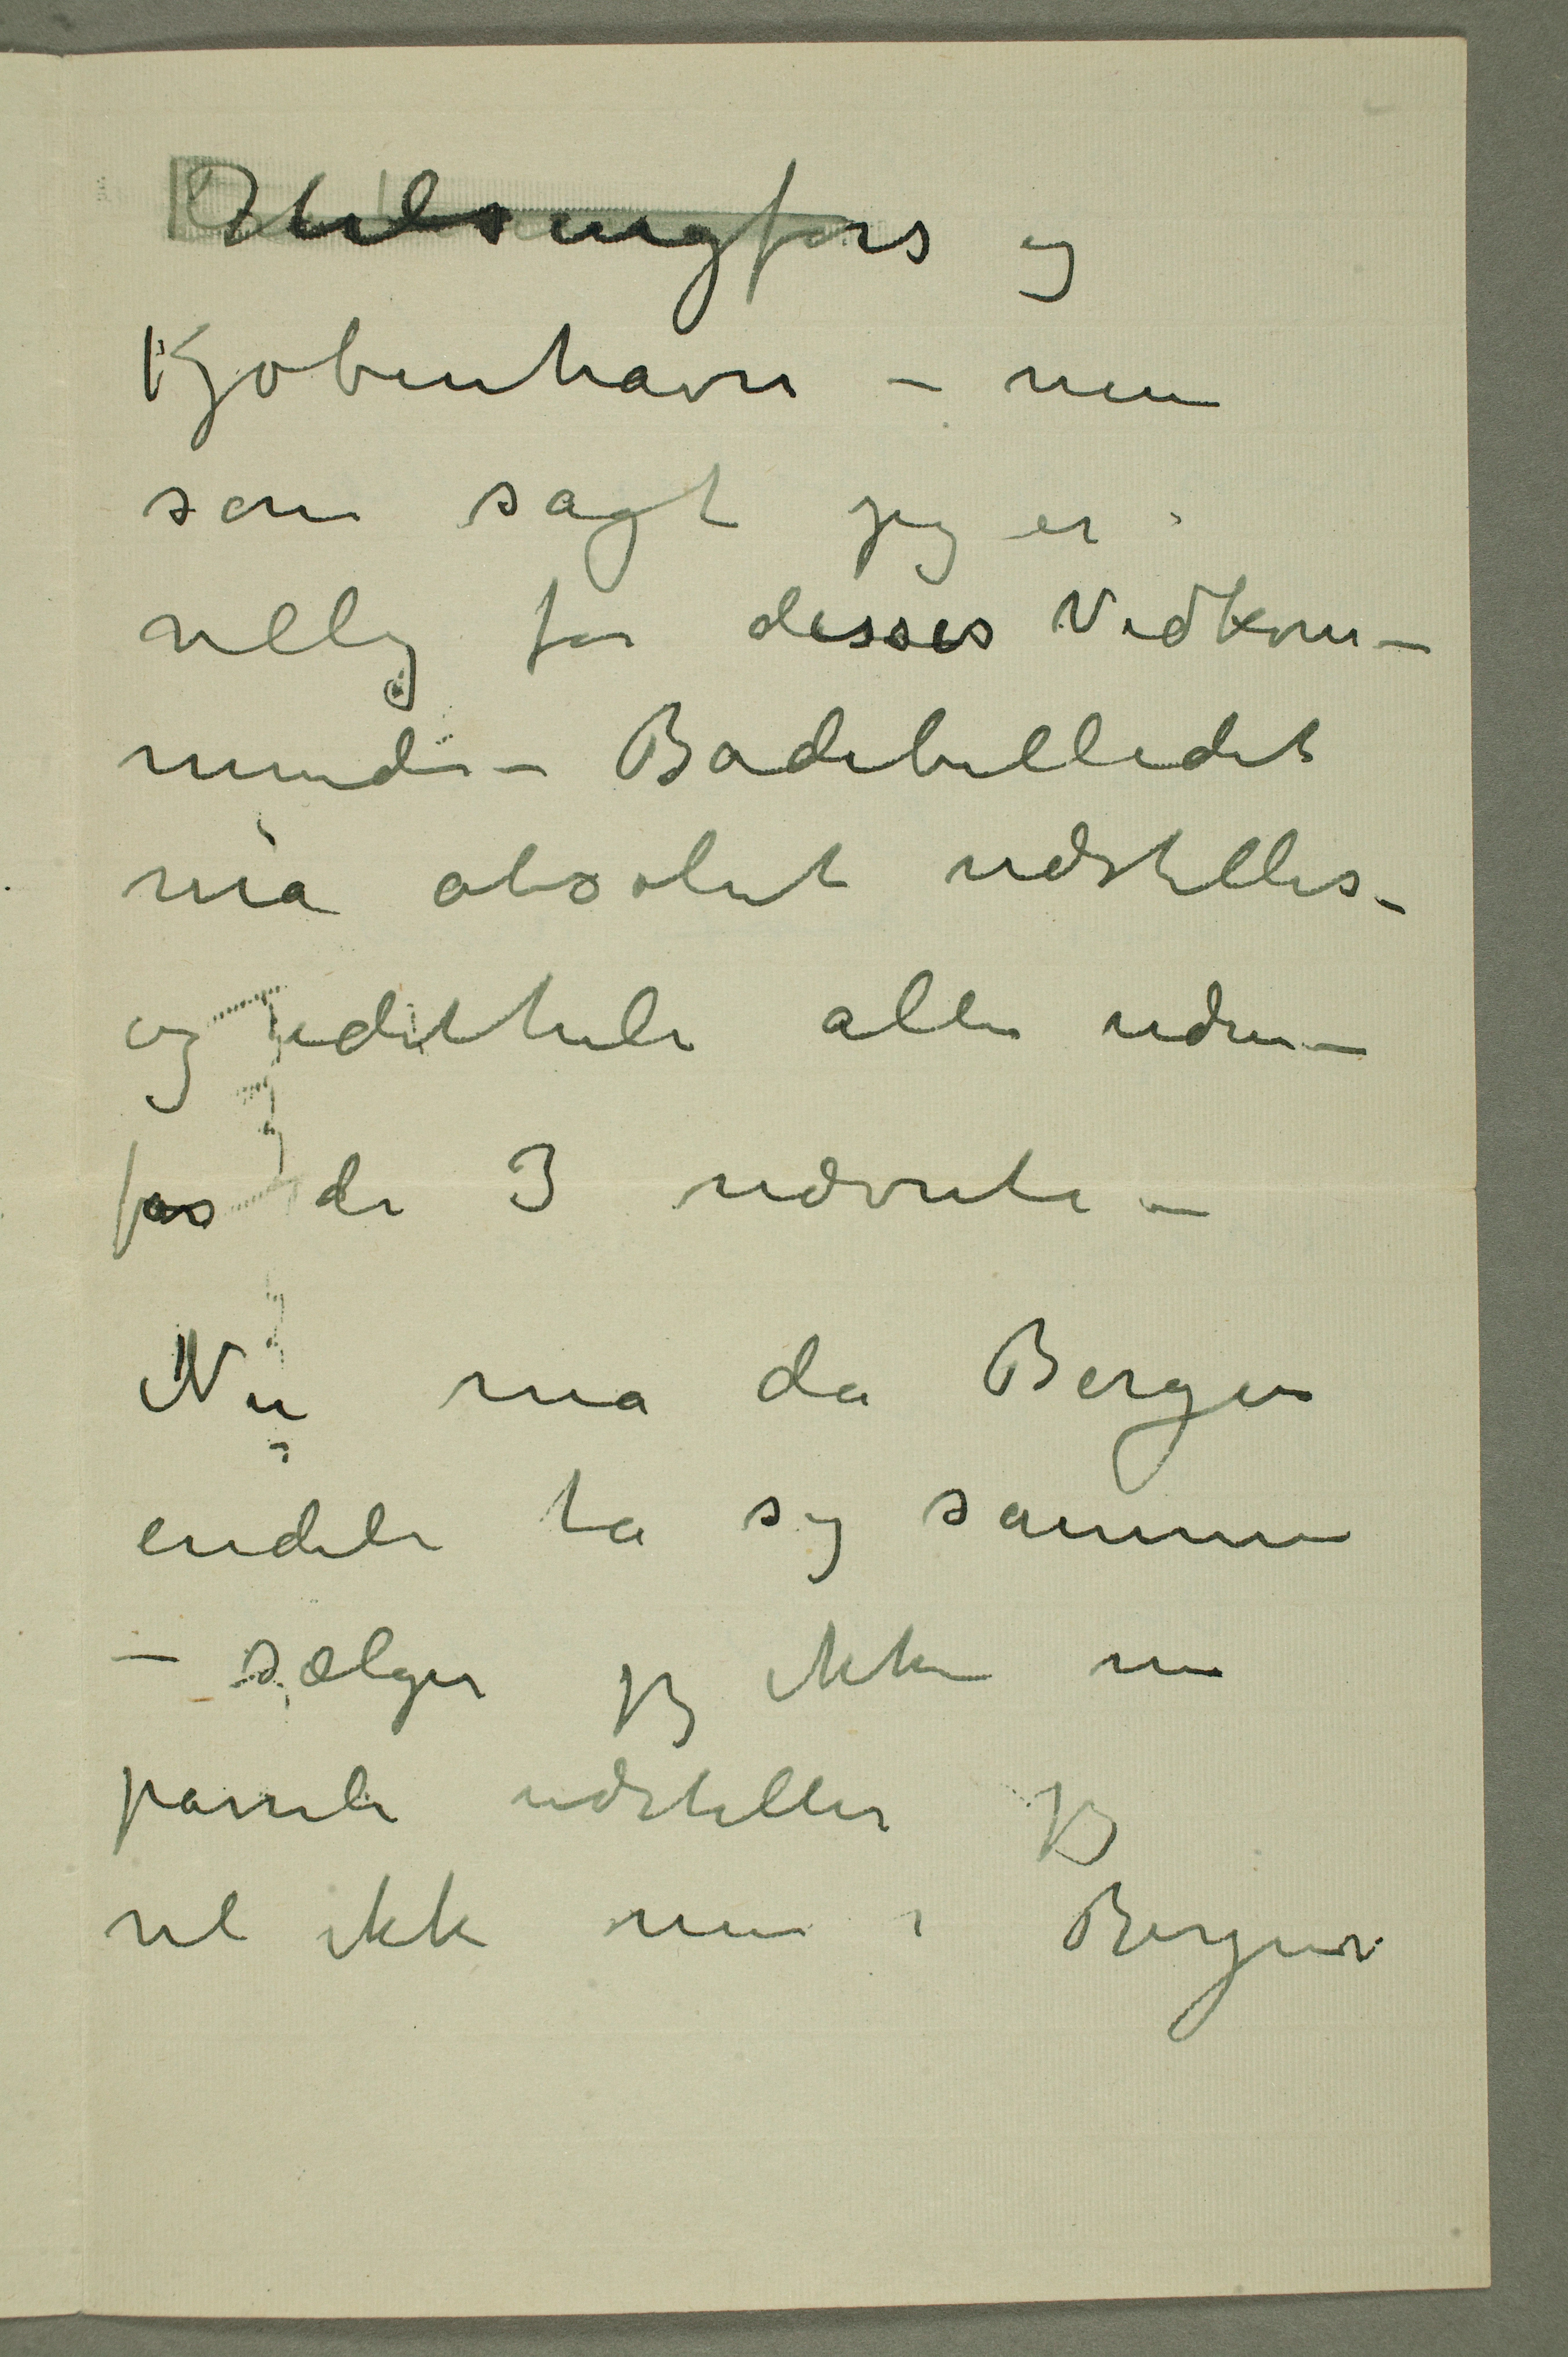 Helsingfors og
Kjøbenhavn – men
som sagt jeg er
villig for disses Vedkom–
mende – Badebilledet
må absolut udstilles –
og idethele alle uden–
for de 3 nævnte –
Nu må da Bergen
endele ta sig sammen
– sælger jeg ikke nu
parile udstiller jeg
vel ikke mer i Bergen